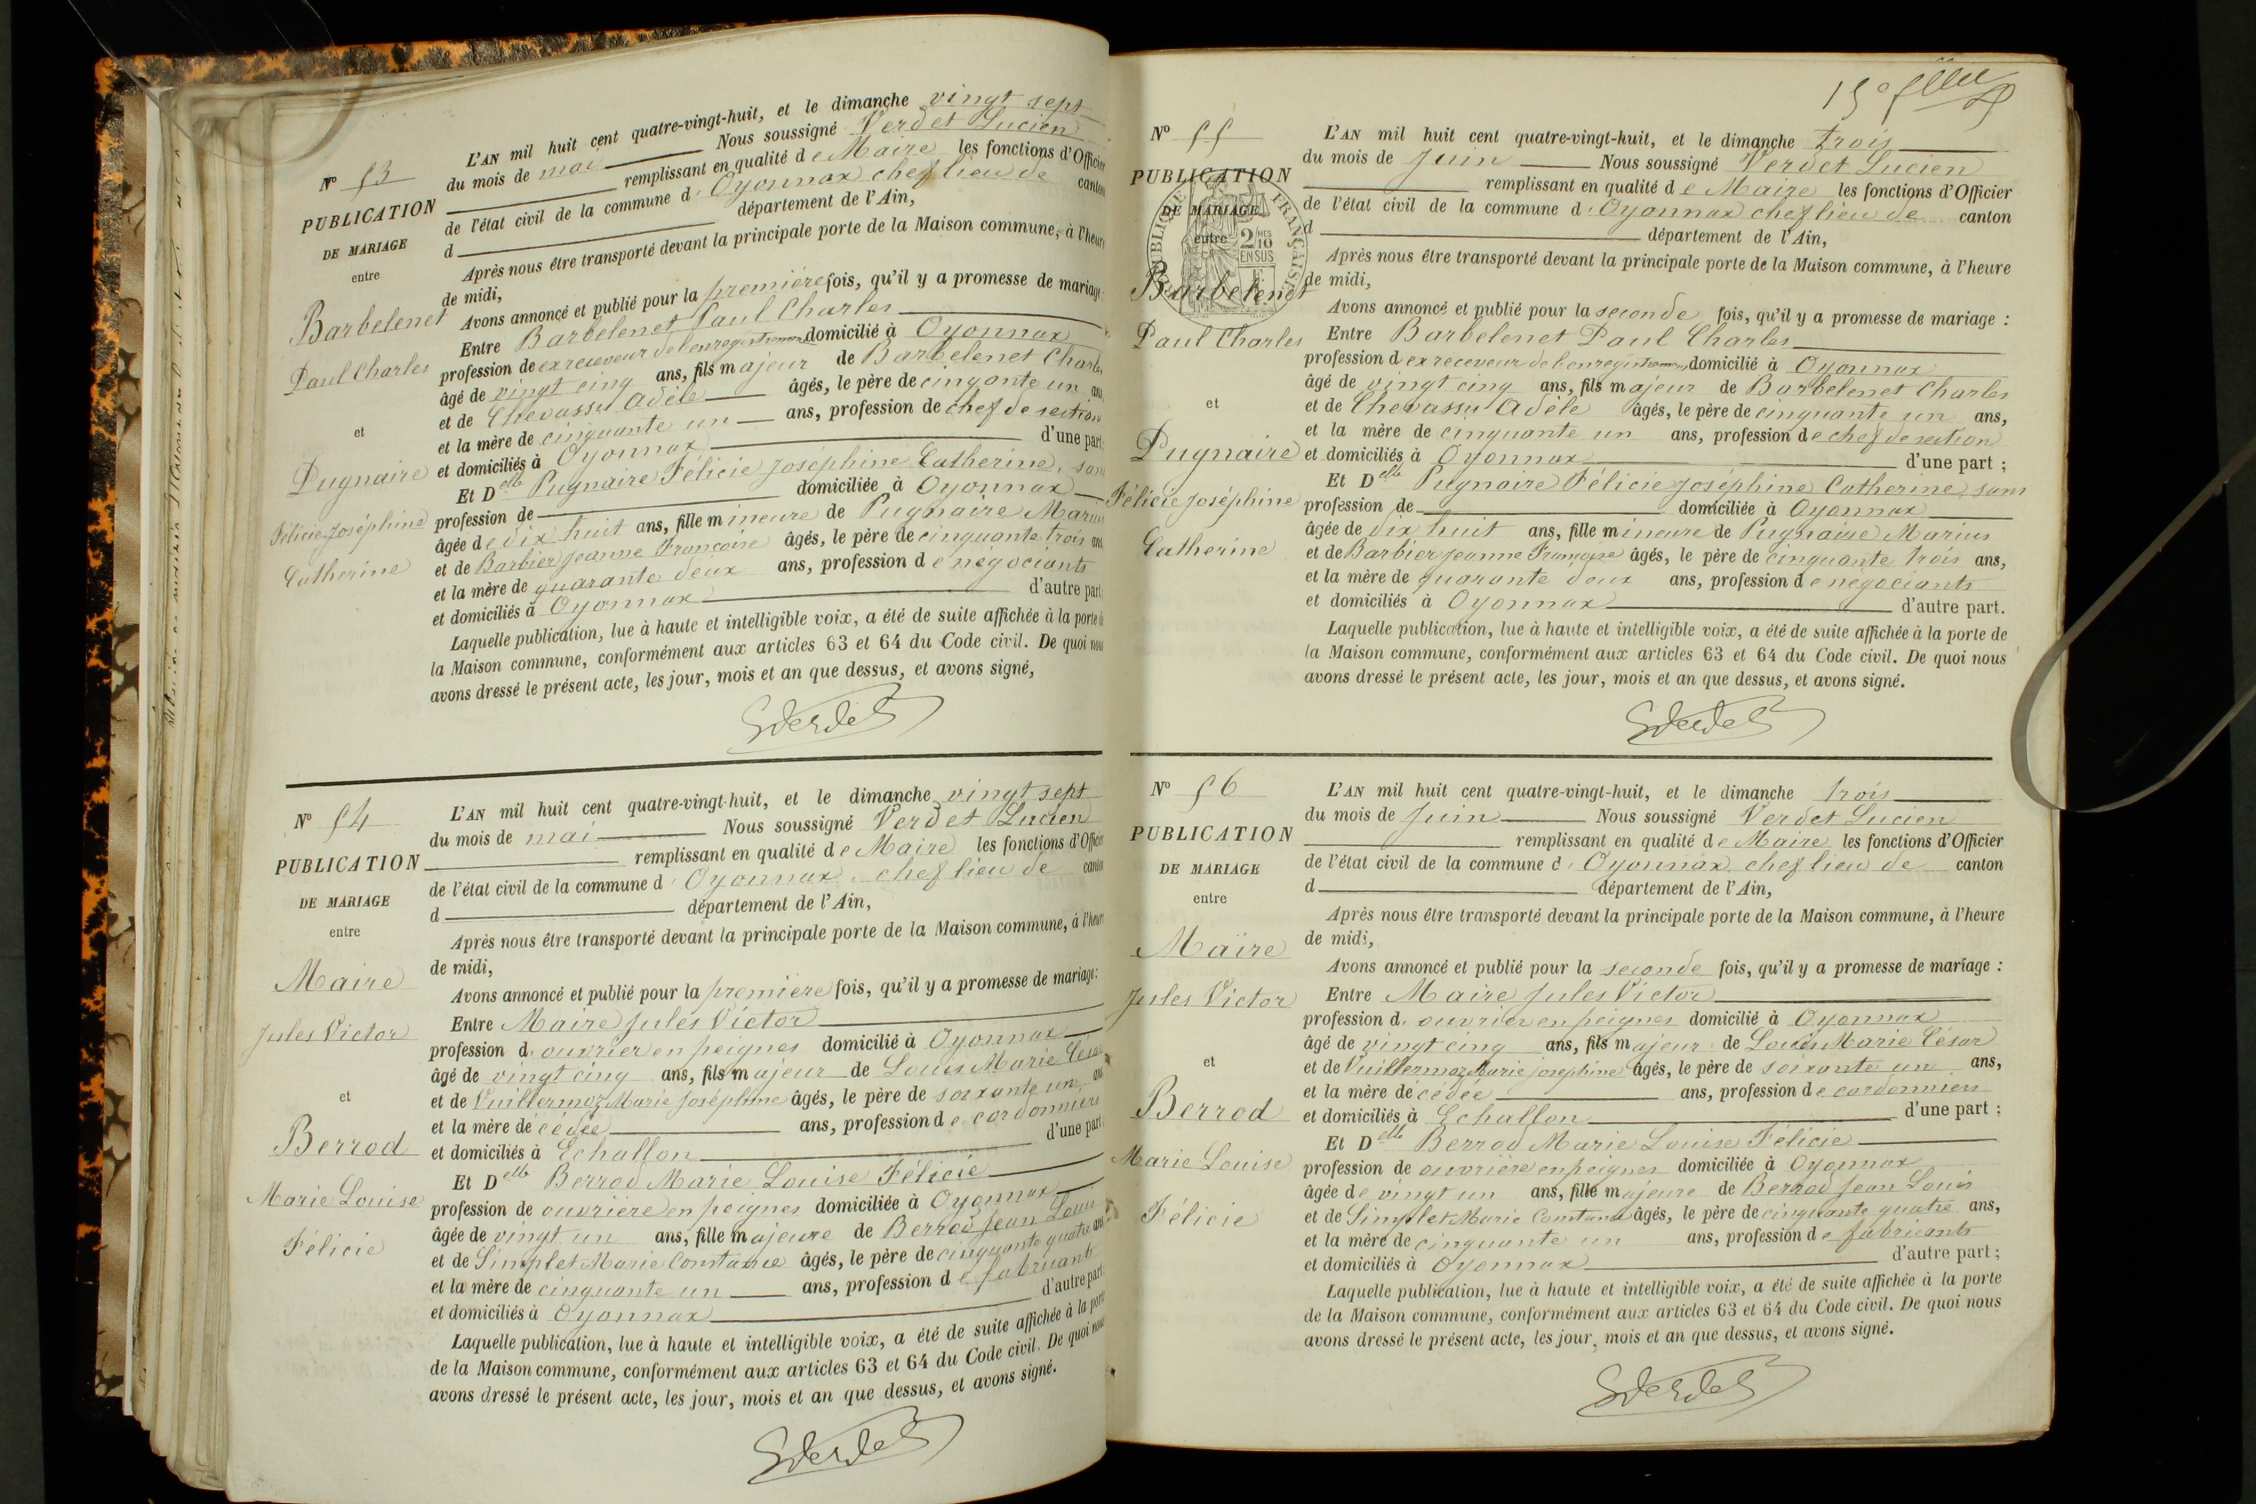 N° 53
PUBLICATION
DE MARIAGE
entre
Barbelenet
Paul Charles
et
Pugnaire
Félicie Joséphine
Catherine
L'AN mil huit cent quatre-vingt-huit, et le dimanche vingt sept
du mois de mai Nous soussigné Verdet Lucien
remplissant en qualité de Maire les fonctions d'Officier
de l'état civil de la commune d'Oyonnax chef lieu de canton
d département de l'Ain,
Après nous être transporté devant la principale porte de la Maison commune, à l'heure
de midi,
Avons annoncé et publié pour la première fois, qu'il y a promesse de mariage:
Entre Barbelenet Paul Charles
profession de ex receveur de l'enregistrement domicilié à Oyonnax
âgé de vingt cinq ans, fils majeur de Barbelenet Charles
et de Chevassu Adèle âgés, le père de cinqante un ans,
et la mère de cinquante un ans, profession de chef de section
et domiciliés à Oyonnax d'une part;
Et Delle Pugnaire Félicie Joséphine Catherine, sans
profession de domiciliée à Oyonnax
âgée de dix huit ans, fille mineure de Pugnaire Marius
et de Barbier Jeanne Françoise âgés, le père de cinquante trois ans
et la mère de quarante deux ans, profession de négociants
et domiciliés à Oyonnax d'autre part.
Laquelle publication, lue à haute et intelligible voix, a été de suite affichée à la porte de
la Maison commune, conformément aux articles 63 et 64 du Code civil. De quoi nous
avons dressé le présent acte, les jour, mois et an que dessus, et avons signé,
Verdet
N° 54
PUBLICATION
DE MARIAGE
entre
Maire
Jules Victor
et
Berrod
Marie Louise
Félicie
L'AN mil huit cent quatre-vingt-huit, et le dimanche vingt sept
du mois de mai Nous soussigné Verdet Lucien
remplissant en qualité de Maire les fonctions d'Officier
de l'état civil de la commune d'Oyonnax chef lieu de canton
d département de l'Ain,
Après nous être transporté devant la principale porte de la Maison commune, à l'heure
de midi,
Avons annoncé et publié pour la première fois, qu'il y a promesse de mariage:
Entre Maire Jules Victor
profession d'ouvrier en peignes domicilié à Oyonnax
âgé de vingt cinq ans, fils majeur de Louis Marie César
et de Vuillermoz Marie Joséphine âgés, le père de soixante un ans
et la mère décédée ans, profession de cordonniers
et domiciliés à Echallon d'une part;
Et Delle Berrod Marie Louise Félicie
profession de ouvrière en peignes domiciliée à Oyonnax
âgée de vingt un ans, fille majeure de Berrod Jean Louis
et de Simplet Marie Constance âgés, le père de cinquante quatre ans
et la mère de cinquante un ans, profession de fabricants
et domiciliés à Oyonnax d'autre part;
Laquelle publication, lue à haute et intelligible voix, a été de suite affichée à la porte
de la Maison commune, conformément aux articles 63 et 64 du Code civil. De quoi nous
avons dressé le présent acte, les jour, mois et an que dessus, et avons signé.
Verdet
15e
N° 55
PUBLICATION
DE MARIAGE
entre
RÉPUBLIQUE FRANÇAISE
2 MES 10
EN SUS
Barbelenet
Paul Charles
et
Pugnaire
Félicie Joséphine
Catherine
L'AN mil huit cent quatre-vingt-huit, et le dimanche trois
du mois de Juin Nous soussigné Verdet Lucien
remplissant en qualité de Maire les fonctions d'Officier
de l'état civil de la commune d'Oyonnax chef lieu de canton
d département de l'Ain,
Après nous être transporté devant la principale porte de la Maison commune, à l'heure
de midi,
Avons annoncé et publié pour la seconde fois, qu'il y a promesse de mariage :
Entre Barbelenet Paul Charles
profession d'ex receveur de l'enregistrement domicilié à Oyonnax
âgé de vingt cinq ans, fils majeur de Barbelenet Charles
et de Chevassu Adèle âgés, le père de cinquante un ans,
et la mère de cinquante un ans, profession de chef de section
et domiciliés à Oyonnax d'une part ;
Et Delle Pugnaire Félicie Joséphine Catherine, sans
profession de domiciliée à Oyonnax
âgée de dix huit ans, fille mineure de Pugnaire Marius
et de Barbier Jeanne Françoise âgés, le père de cinquante trois ans,
et la mère de quarante deux ans, profession de négociants
et domiciliés à Oyonnax d'autre part.
Laquelle publication, lue à haute et intelligible voix, a été de suite affichée à la porte de
la Maison commune, conformément aux articles 63 et 64 du Code civil. De quoi nous
avons dressé le présent acte, les jour, mois et an que dessus, et avons signé.
Verdet
N° 56
PUBLICATION
DE MARIAGE
entre
Maire
Jules Victor
et
Berrod
Marie Louise
Félicie
L'AN mil huit cent quatre-vingt-huit, et le dimanche trois
du mois de Juin Nous soussigné Verdet Lucien
remplissant en qualité de Maire les fonctions d'Officier
de l'état civil de la commune d'Oyonnax chef lieu de canton
d département de l'Ain,
Après nous être transporté devant la principale porte de la Maison commune, à l'heure
de midi,
Avons annoncé et publié pour la seconde fois, qu'il y a promesse de mariage :
Entre Maire Jules Victor
profession d'ouvrier en peignes domicilié à Oyonnax
âgé de vingt cinq ans, fils majeur de Louis Marie César
et de Vuillermoz Marie Joséphine âgés, le père de soixante un ans,
et la mère décédée ans, profession de cordonniers
et domiciliés à Echallon d'une part ;
Et Delle Berrod Marie Louise Félicie
profession de ouvrière en peignes domiciliée à Oyonnax
âgée de vingt un ans, fille majeure de Berrod Jean Louis
et de Simplet Marie Constance âgés, le père de cinquante quatre ans,
et la mère de cinquante un ans, profession de fabricants
et domiciliés à Oyonnax d'autre part ;
Laquelle publication, lue à haute et intelligible voix, a été de suite affichée à la porte
de la Maison commune, conformément aux articles 63 et 64 du Code civil. De quoi nous
avons dressé le présent acte, les jour, mois et an que dessus, et avons signé.
Verdet